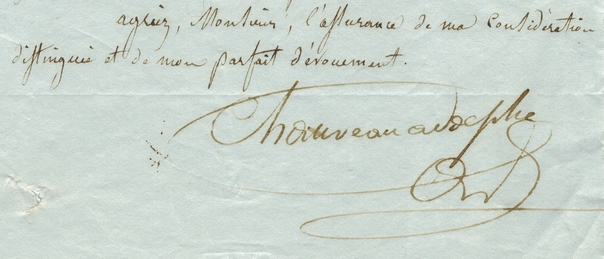 agréez, Monsieur, l'assurance de ma considération
distinguée et de mon parfait dévouement.
Chauveau adolphe